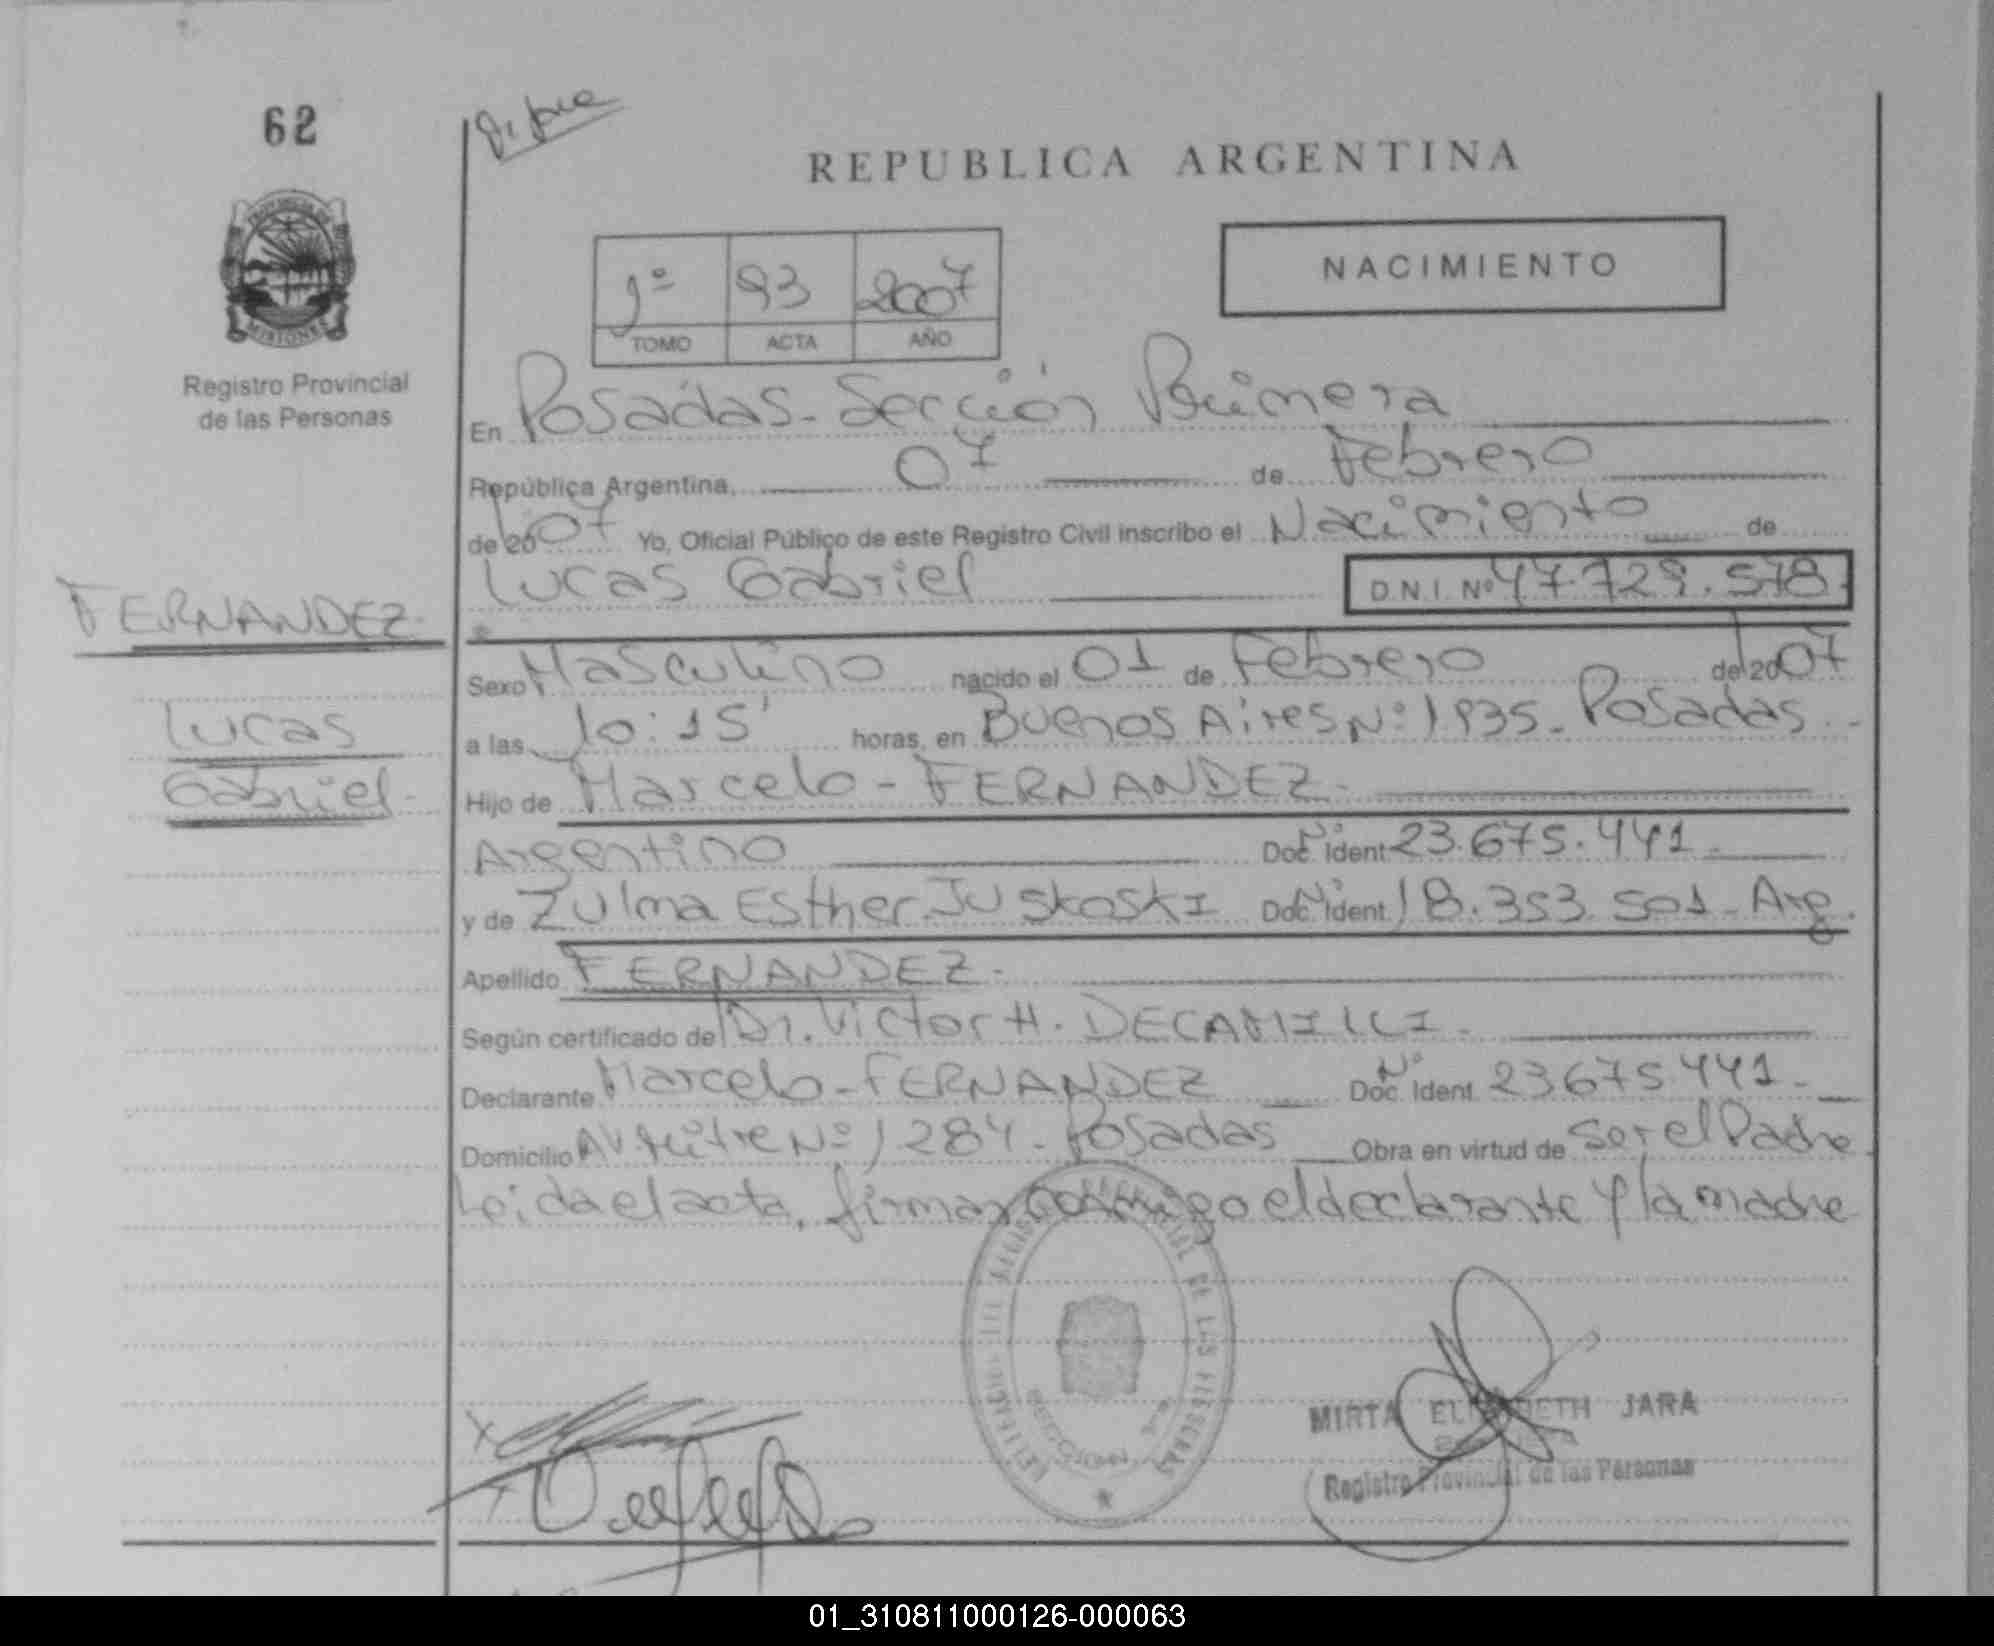 62
REPUBLICA ARGENTINA
PROVINCIA DE
MISIONES
Registro Provincial
de las Personas
1º 93 2007
TOMO ACTA AÑO
NACIMIENTO
En Posadas - Sección Primera
República Argentina, 07 de Febrero
de 2007 Yo, Oficial Público de este Registro Civil inscribo el Nacimiento de
Lucas Gabriel D.N.I. Nº 47.729.578.
FERNANDEZ
Lucas
Gabriel
Sexo Masculino nacido el 01 de Febrero de 2007
a las 10:15' horas, en Buenos Aires Nº 1935 - Posadas
Hijo de Marcelo - FERNANDEZ
Argentino Nº Doc. Ident. 23.675.441
y de Zulma Esther JUSKOSKI Nº Doc. Ident. 18.353.501 - Arg.
Apellido FERNANDEZ
Según certificado del Dr. Victor H. DECAMILLI
Declarante Marcelo - FERNANDEZ Nº Doc. Ident. 23675.441
Domicilio AV. Mitre Nº 1284 - Posadas Obra en virtud de Ser el Padre
Leida el acta, firman conmigo el declarante y la madre
MIRTA ELIZABETH JARA
Registro Provincial de las Personas
01_310811000126-000063